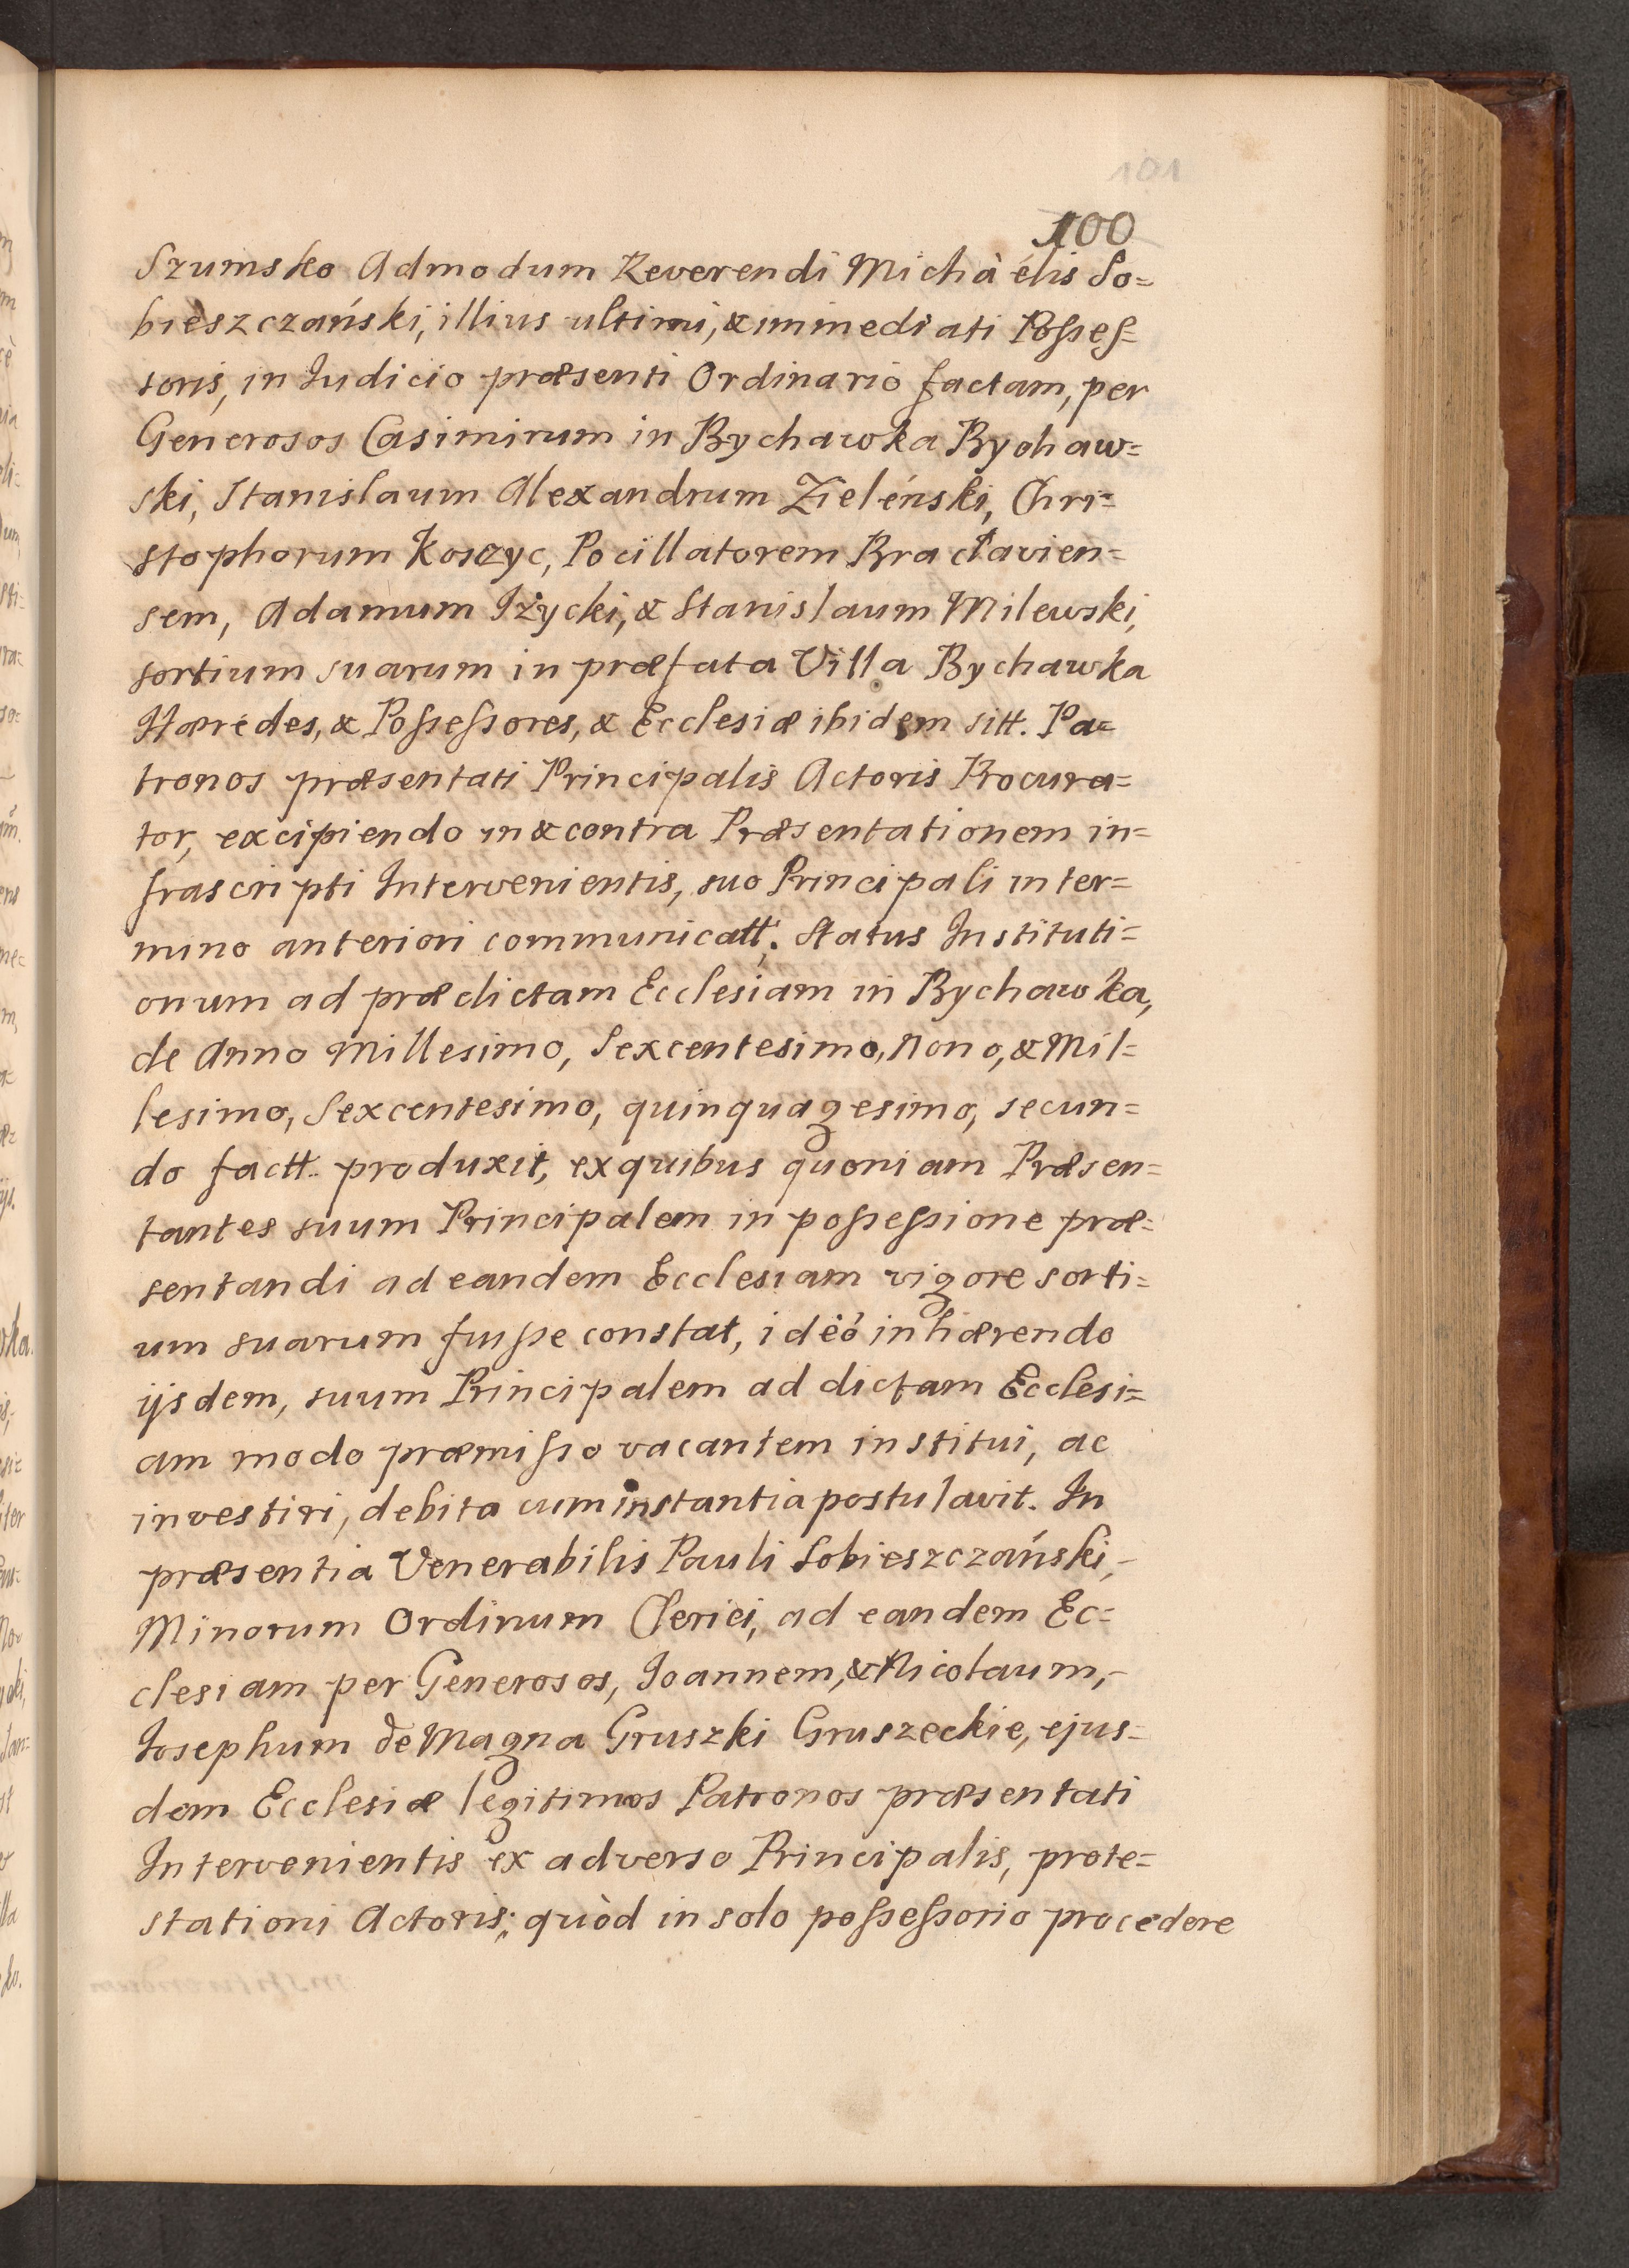 101
100
Szumsko Admodum Reverendi Michàélis So=
bieszczański, illius ultimi, & immediati Posses=
soris, in Iudicio præsenti Ordinario factam, per
Generosos Casimirum in Bychawka Bychaw=
ski, Stanislaum Alexandrum Zieleński, Chri=
stophorum Koszyc, Pocillatorem Braclavien=
sem, Adamum Iżycki, & Stanislaum Milewski,
sortium suarum in præfata Villa Bychawka
Hæredes, & Possessores, & Ecclesiæ ibidem sitt. Pa=
tronos præsentati Principalis Actoris Procura=
tor, excipiendo in & contra Præsentationem in=
frascripti Intervenientis, suo Principali in ter=
mino anteriori communicatt. Status Instituti=
onum ad prædictam Ecclesiam in Bychawka,
de Anno Millesimo, Sexcentesimo, Nono, & Mil=
lesimo, Sexcentesimo, quinquagesimo, secun=
do factt. produxit, ex quibus quoniam Præsen=
tantes suum Principalem in possessione præ=
sentandi ad eandem Ecclesiam vigore sorti=
um suarum fuisse constat, idèó inhærendo
ijsdem, suum Principalem ad dictam Ecclesi=
am modo præmisso vacantem institui, ac
investiri, debita cum instantia postulavit. In
præsentia Venerabilis Pauli Sobieszczański,
Minorum Ordinum Clerici, ad eandem Ec=
clesiam per Generosos, Ioannem, & Nicolaum,
Iosephum de Magna Gruszki Gruszeckie, ejus=
dem Ecclesiæ legitimos Patronos præsentati
Intervenientis ex adverso Principalis, prote=
stationi Actoris; quòd in solo possessorio procedere